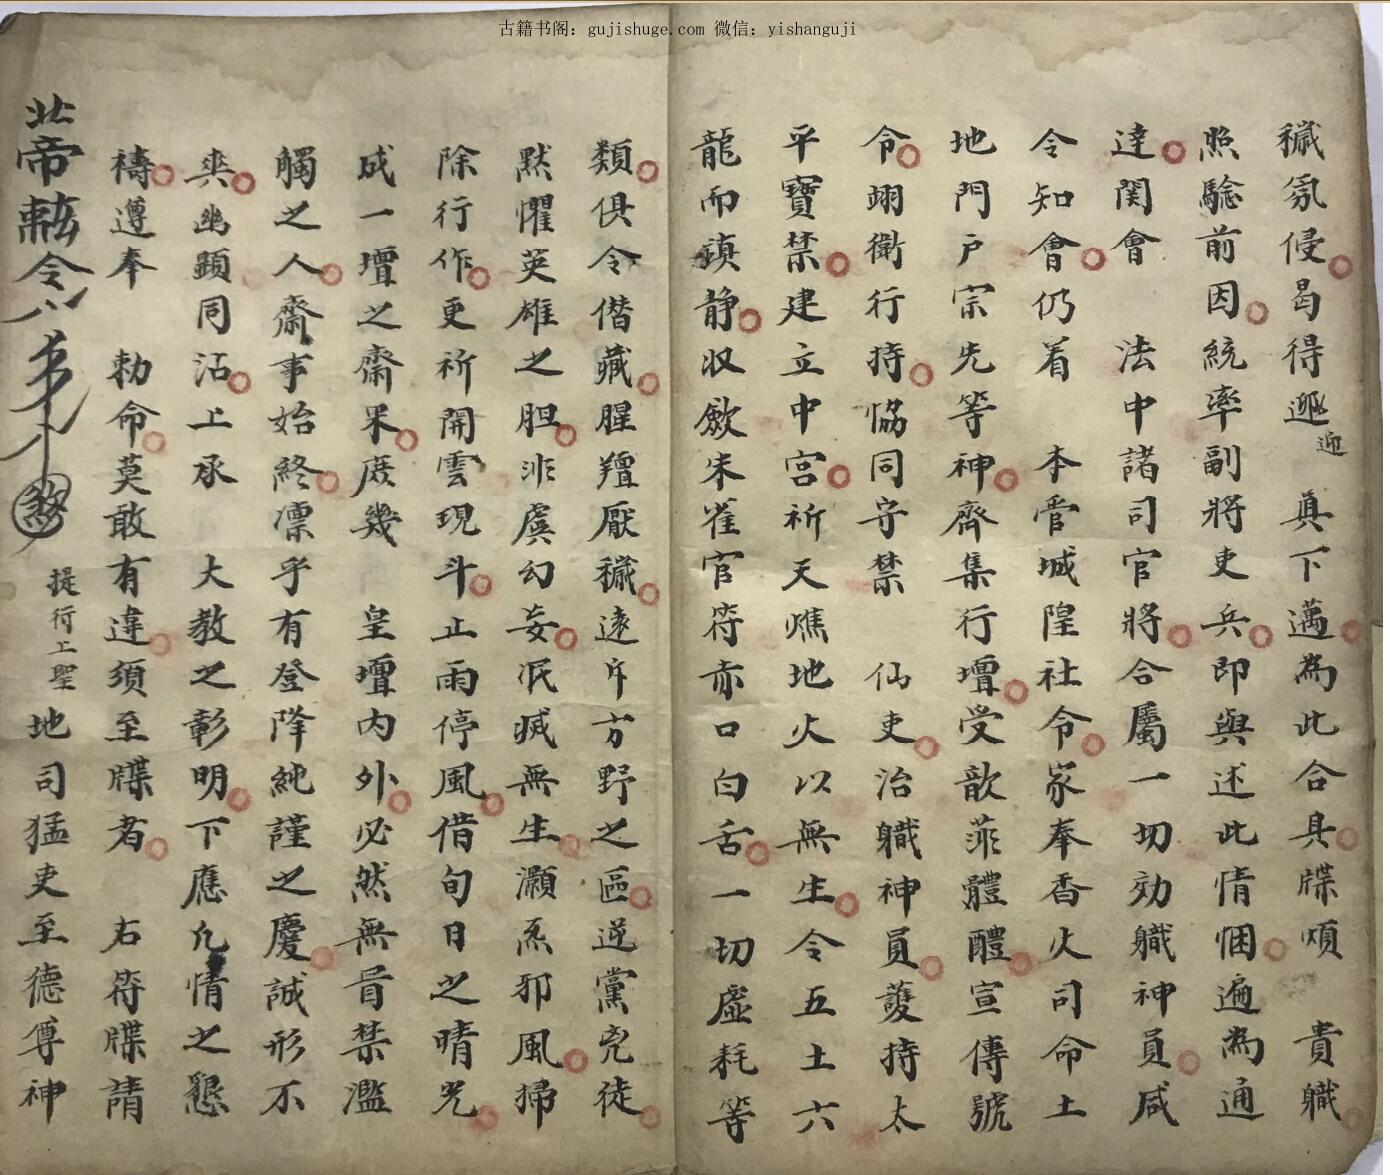 古籍书阁：gujishuge.com 微信：yishanguji
穢氛侵曷得迎 真下邁為此合具牒煩 貴職
迎
照驗前因統率副將吏兵即與述此情悃遍為通
達関會 法中諸司官將合屬一切効職神員咸
令知會仍着 本管城隍社令家奉香火司命土
地門户宗先等神齊集行壇受歆菲體醴宣傳號
令翊衛行持恊同守禁 仙吏治職神員護持太
平寶禁建立中宮祈天燋地火以無生令五土六
龍而鎮静収歛朱雀官符赤口白舌一切虛耗等
類俱令僣藏腥羶厭穢逺斥方野之區逆黨兇徒
黙懼英雄之胆非虞幻妄泯滅無生灝炁邪風掃
除行作更祈開雲現斗止雨停風借旬日之晴光
成一壇之齋果庶幾 皇壇内外必然無冐禁濫
觸之人齋事始終凛乎有登降純謹之慶誠形不
爽幽顕同沾上承 大教之彰明下應凢情之懇
禱遵奉 勅命莫敢有違須至牒者 右符牒請
北帝敕令
提行上聖 地司猛吏至德尊神